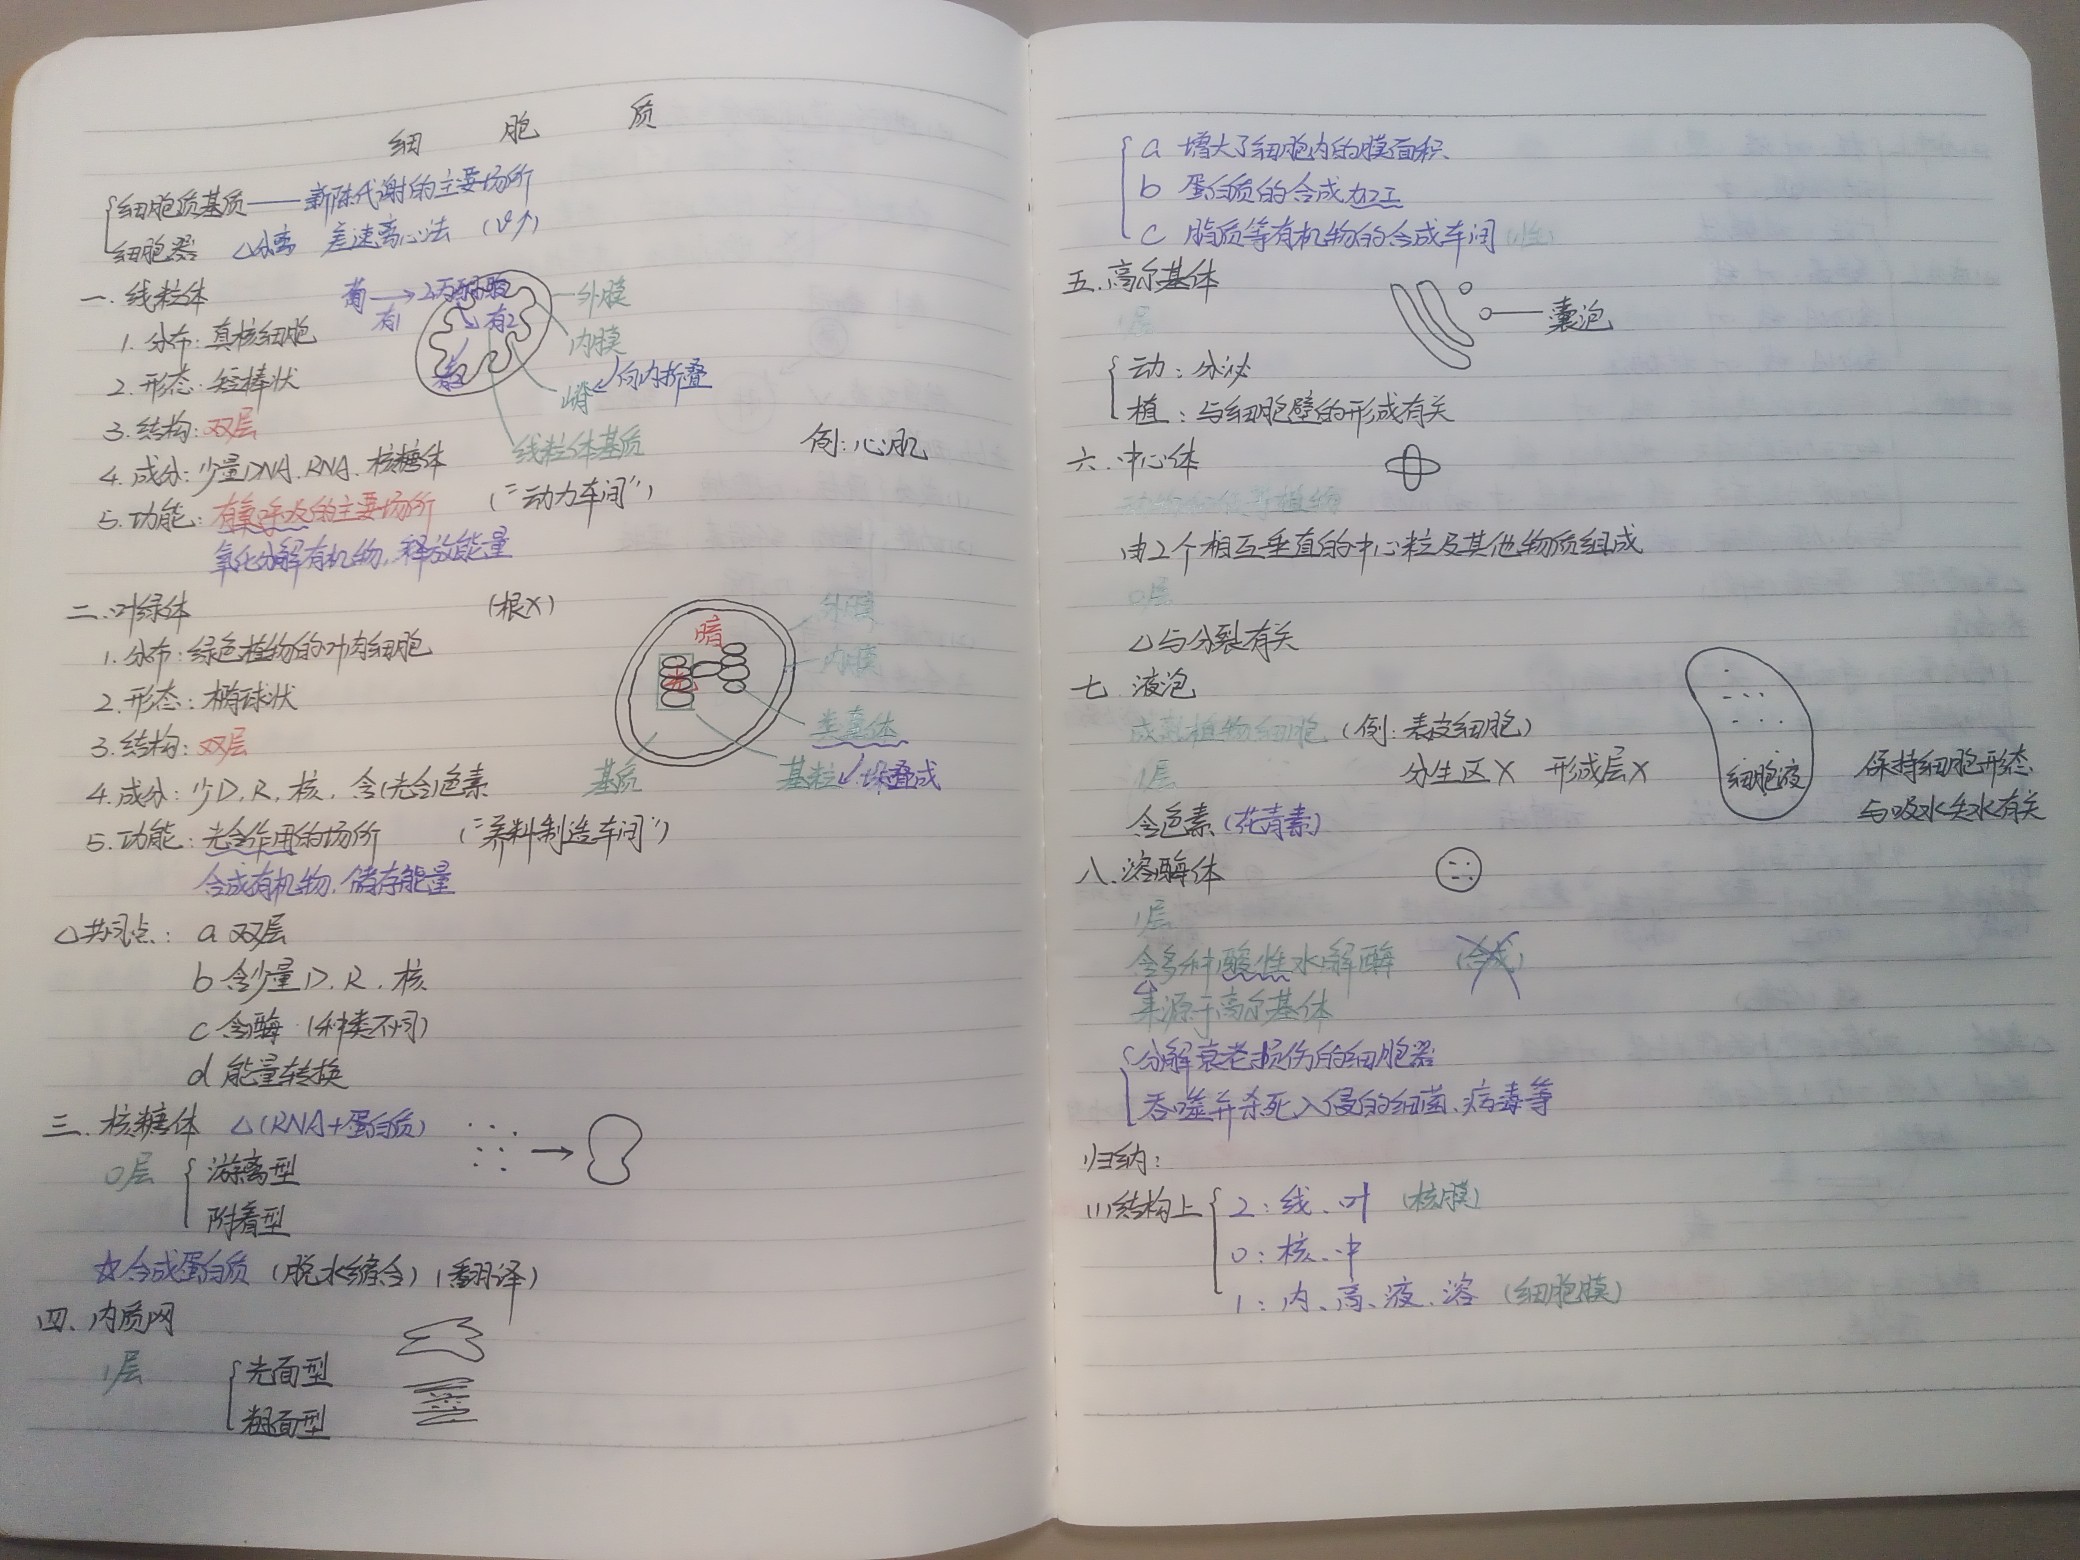 细 胞 质
细胞质基质——新陈代谢的主要场所
细胞器 △分离 差速离心法 (v↑)
一.线粒体
葡→2丙酮酸
有1
有2
有3
外膜
内膜
嵴 向内折叠
线粒体基质
1.分布:真核细胞
2.形态:短棒状
3.结构:双层
例:心肌
4.成分:少量DNA.RNA.核糖体
5.功能:有氧呼吸的主要场所 ("动力车间")
氧化分解有机物,释放能量
二.叶绿体 (根X)
1.分布:绿色植物的叶肉细胞
2.形态:椭球状
3.结构:双层
4.成分:少D.R.核.含(光合)色素
5.功能:光合作用的场所 ("养料制造车间")
合成有机物,储存能量
暗
光
外膜
内膜
类囊体
基质
基粒 堆叠成
△共同点: a 双层
b 含少量D.R.核
c 含酶 (种类不同)
d 能量转换
三.核糖体 △(RNA+蛋白质)
0层 游离型
附着型
☆合成蛋白质 (脱水缩合) (翻译)
四.内质网
1层 光面型
粗面型
a 增大了细胞内的膜面积
b 蛋白质的合成加工
c 脂质等有机物的合成车间
五.高尔基体
囊泡
1层
动:分泌
植:与细胞壁的形成有关
六.中心体
动物和低等植物
由2个相互垂直的中心粒及其他物质组成
0层
△与分裂有关
七.液泡
成熟植物细胞 (例:表皮细胞)
1层 分生区X 形成层X
含色素(花青素)
细胞液
保持细胞形态
与吸水失水有关
八.溶酶体
1层
含多种酸性水解酶 (合成)
来源于高尔基体
分解衰老损伤的细胞器
吞噬并杀死入侵的细菌、病毒等
归纳:
(1)结构上 2:线、叶 (核膜)
0:核.中
1:内、高、液、溶 (细胞膜)